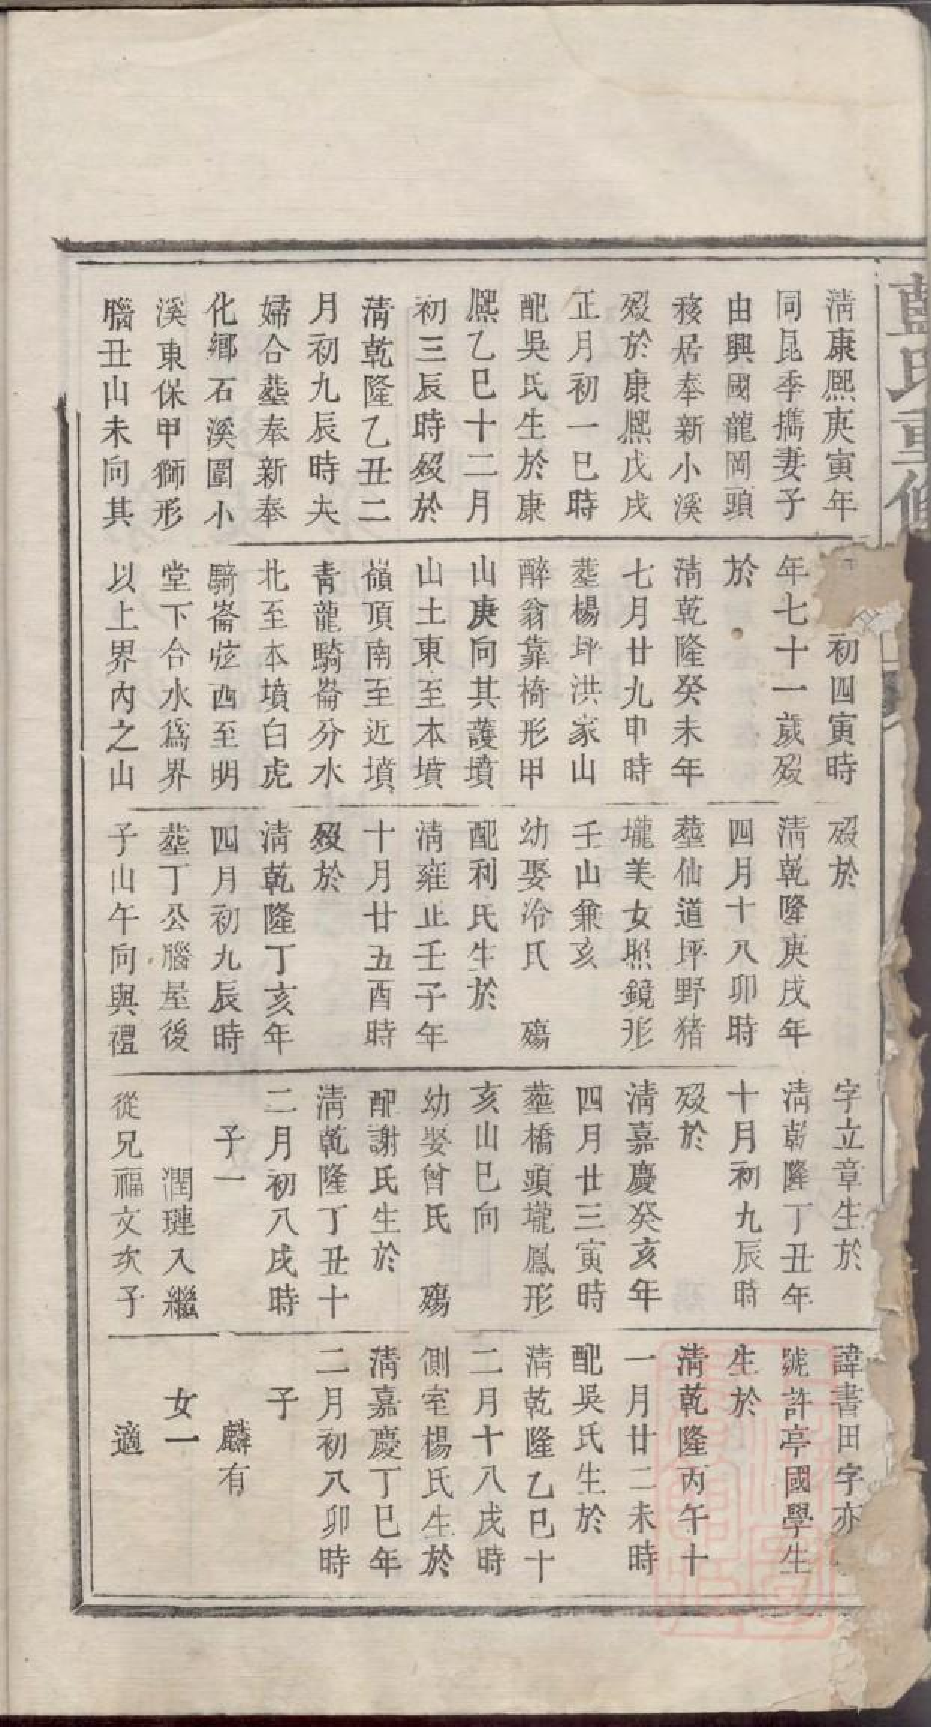 藍氏重修
清康熙庚寅年
同昆季擕妻子
由興國龍岡頭
移居奉新小溪
歿於康熈戊戌
正月初一巳時
配吳氏生於康
熈乙巳十二月
初三辰時歿於
淸乾隆乙丑二
月初九辰時夫
婦合塟奉新奉
化鄉石溪圍小
溪東保甲獅形
腦丑山未向其
初四寅時
年七十一歲歿
於
淸乾隆癸未年
七月廿九申時
塟楊坪洪家山
醉翁靠椅形甲
山庚向其護墳
山土東至本墳
嶺頂南至近墳
青龍騎崙分水
北至本墳白虎
騎崙弦西至明
堂下合水爲界
以上界內之山
歿於
淸乾隆庚戌年
四月十八卯時
塟仙道坪野猪
壠美女照鏡形
壬山兼亥
幼娶冷氏　殤
配利氏生於
淸雍正壬子年
十月廿五酉時
歿於
淸乾隆丁亥年
四月初九辰時
塟丁公腦屋後
子山午向與禮
字立章生於
淸乾隆丁丑年
十月初九辰時
歿於
淸嘉慶癸亥年
四月廿三寅時
塟橋頭壠鳳形
亥山巳向
幼娶曾氏　殤
配謝氏生於
淸乾隆丁丑十
二月初八戌時
子一
潤璉入繼
從兄福文次子
諱書田字亦
號許亭國學生
生於
淸乾隆丙午十
一月廿二未時
配吳氏生於
淸乾隆乙巳十
二月十八戌時
側室楊氏生於
淸嘉慶丁巳年
二月初八卯時
子
麟有
女一
適